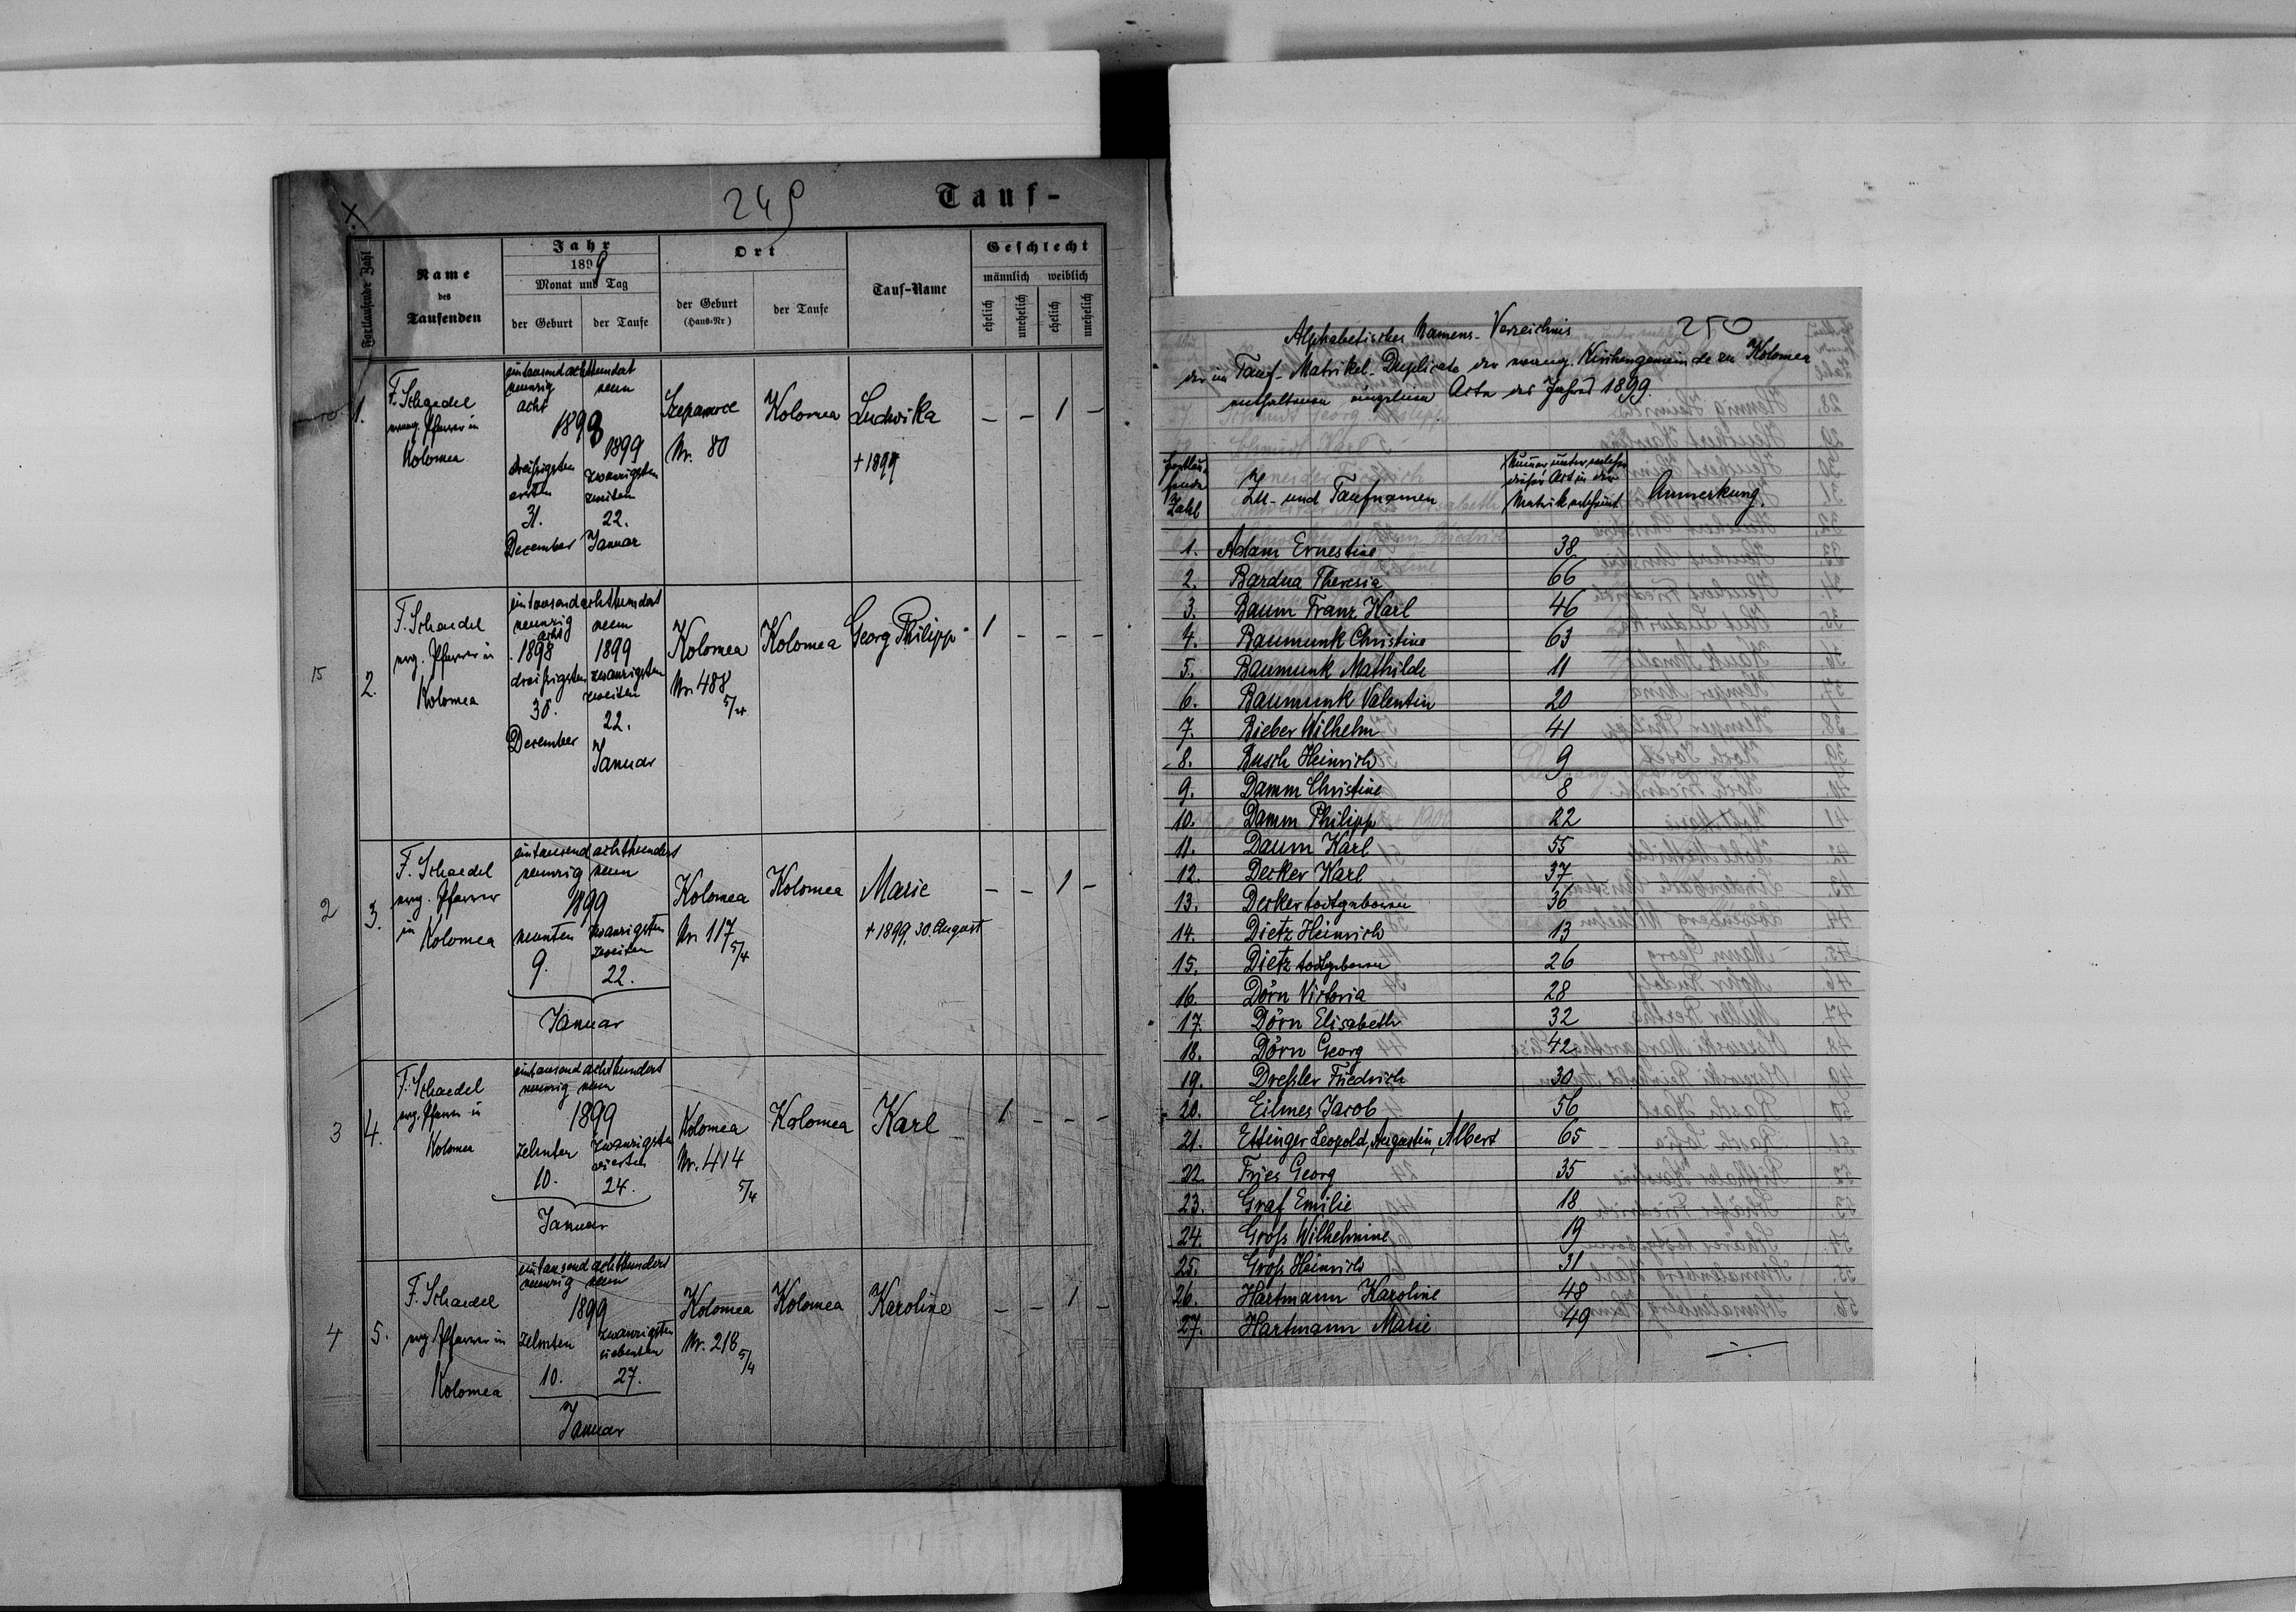 249
Tauf-
Fortlaufende Zahl
Name des Taufenden
Jahr
1899
Monat und Tag
der Geburt
der Taufe
Ort
der Geburt
(Haus-Nr)
der Taufe
Tauf-Name
Geschlecht
männlich
weiblich
ehelich
unehelich
ehelich
unehelich
1.
F. Schaedel
evang. Pfarrer in
Kolomea
eintausendachthundert
neunzig neun
acht
1898
1899
dreißigsten zwanzigsten
ersten zweiten
31. 22.
December Januar
Szeparowce
Nr. 80
Kolomea
Ludwika
+ 1899
– – 1 –
15
2.
F. Schaedel
evg. Pfarrer in
Kolomea
eintausendachthundert
neunzig neun
acht
1898 1899
dreißigsten zwanzigsten
zweiten
30. 22.
December
Januar
Kolomea
Nr. 488
5/4
Kolomea
Georg Philipp
1 – – –
2
3.
F. Schaedel
evg. Pfarrer
in
Kolomea
eintausend achthundert
neunzig neun
1899
neunten zwanzigsten
zweiten
9. 22.
Januar
Kolomea
Nr. 117
5/4
Kolomea
Marie
+ 1899, 30. August
– – 1 –
3
4.
F. Schaedel
evg. Pfarrer in
Kolomea
eintausend achthundert
neunzig neun
1899
zehnten zwanzigsten
vierten
10. 24.
Januar
Kolomea
Nr. 414
5/4
Kolomea
Karl
1 – – –
4
5.
F. Schaedel
evg. Pfarrer in
Kolomea
eintausend achthundert
neunzig neun
1899
zehnten zwanzigsten
siebenten
10. 27.
Januar
Kolomea
Nr. 218
5/4
Kolomea
Karoline
– – 1 –
250
Alphabetisches Namens-Verzeichnis
der im Tauf-Matrikel-Duplicate der evang. Kirchengemeinde zu Kolomea
enthaltenen einzelnen Acte des Jahres 1899.
Fortlaufende Zahl
Zu- und Taufnamen
Nummer, unter welcher
dieser Act in der
Matrik erscheint
Anmerkung.
1. Adam Ernestine 38
2. Bardua Theresia 66
3. Baum Franz Karl 46
4. Baumunk Christine 63
5. Baumunk Mathilde 11
6. Baumunk Valentin 20
7. Bieber Wilhelm 41
8. Busch Heinrich 9
9. Damm Christine 8
10. Damm Philipp 22
11. Daum Karl 55
12. Decker Karl 37
13. Decker todtgeboren 36
14. Dietz Heinrich 13
15. Dietz todtgeboren 26
16. Dörn Victoria 28
17. Dörn Elisabeth 32
18. Dörn Georg 42
19. Dreßler Friedrich 30
20. Eilmes Jacob 56
21. Ettinger Leopold, Augustin, Albert 65
22. Fries Georg 35
23. Graf Emilie 18
24. Groß Wilhelmine 19
25. Groß Heinrich 31
26. Hartmann Karoline 48
27. Hartmann Marie 49